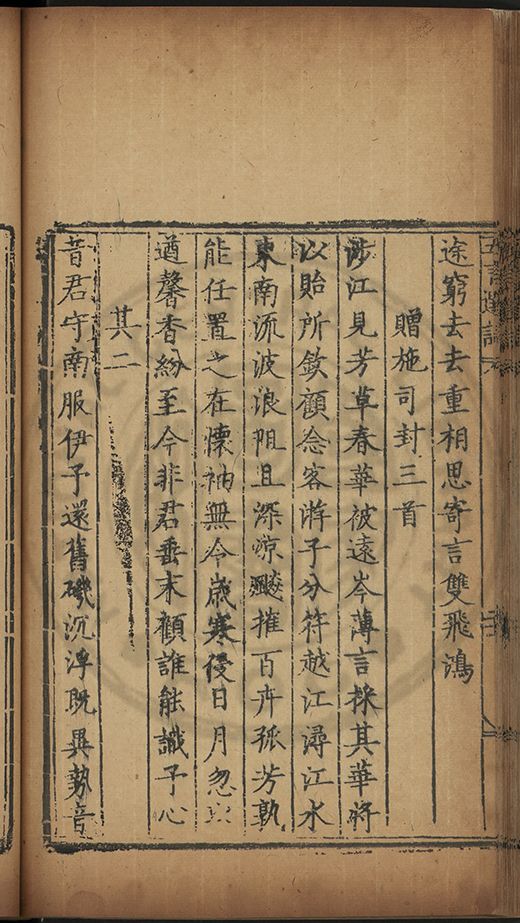 途窮去去重相思寄言雙飛鴻
贈施司封三首
涉江見芳草春華被遠岑薄言採其華將
以貽所欽顧念客遊子分符越江潯江水
東南流波浪阻且深涼飈摧百卉孤芳孰
能任置之在懷袖無令歲寒侵日月忽
遒馨香紛至今非君垂末顧誰能識予心
其二
昔君守南服伊予還舊磯沉浮既異勢音